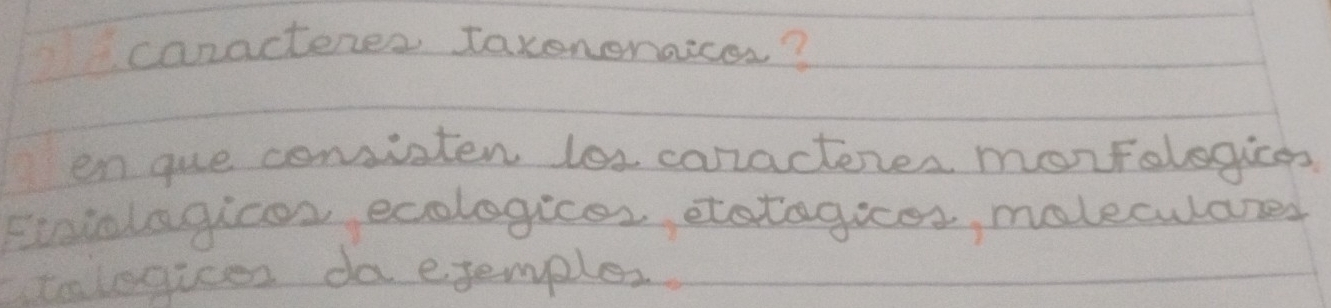 caracteres taxonomicos?
en que consisten los caracteres morfologicos
Fisiologicos, ecologicos, etologicos, moleculares
da ejemplos.